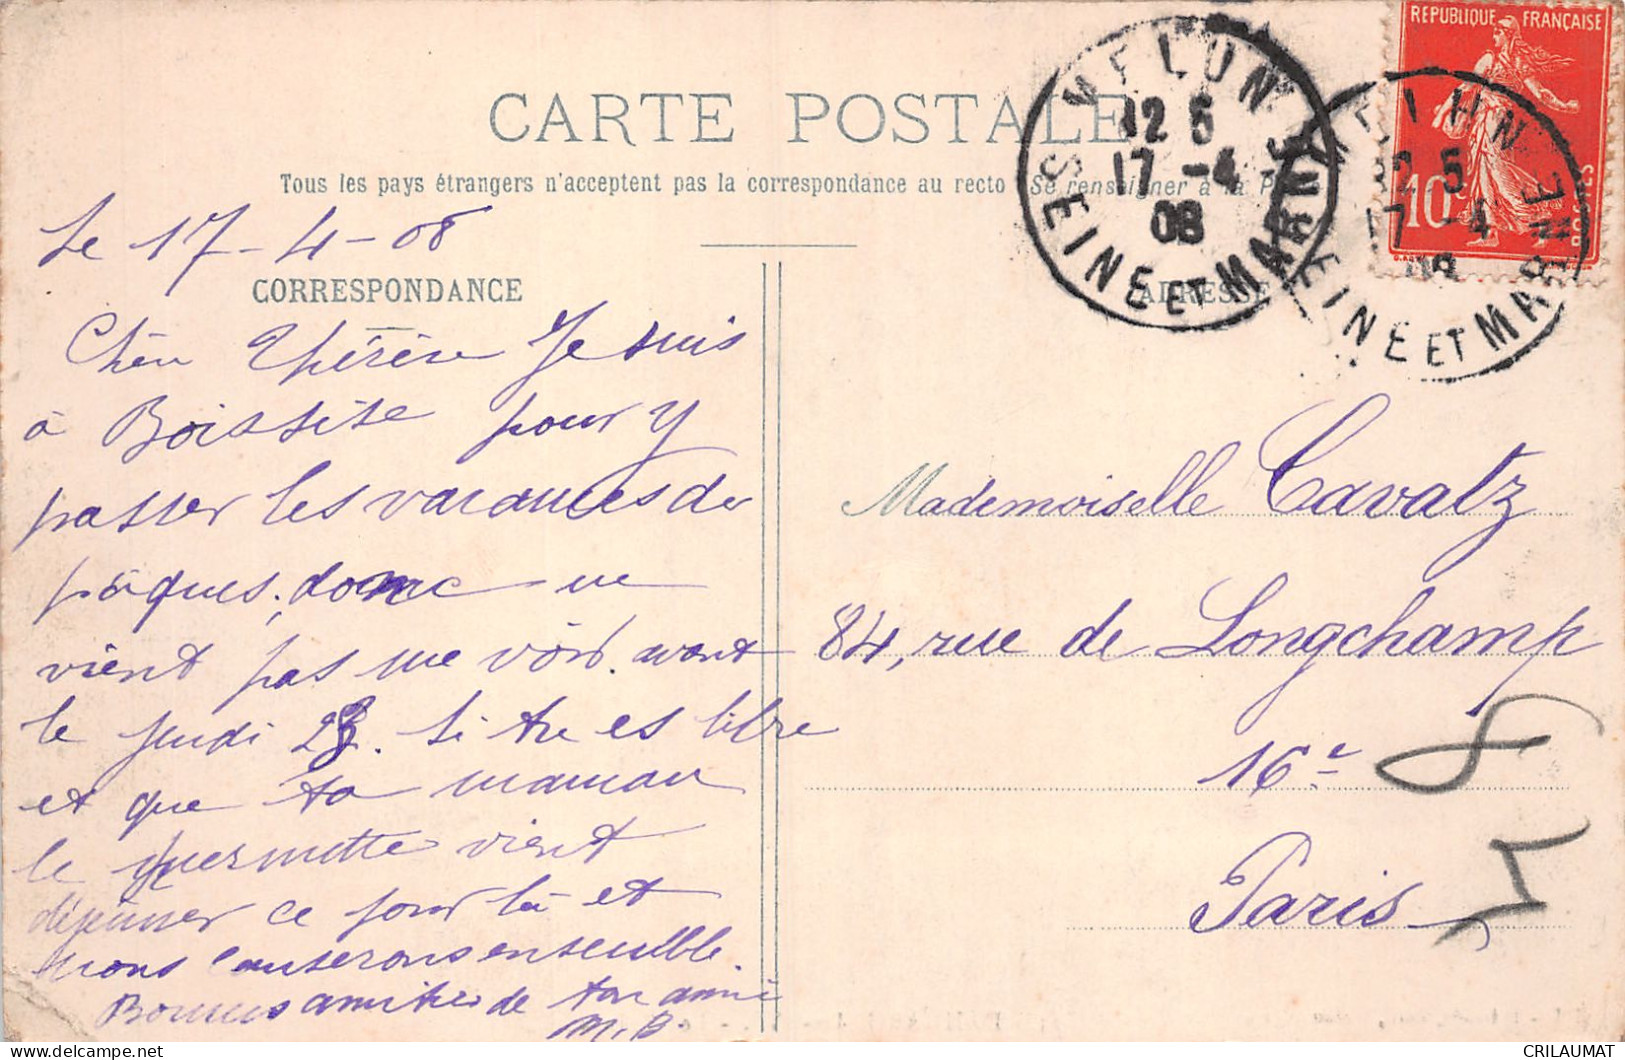 CARTE POSTALE
Tous les pays étrangers n'acceptent pas la correspondance au recto Se renseigner à la P
CORRESPONDANCE
ADRESSE
Le 17-4-08
Chère Thérèse Je suis
à Boissise pour y
passer les vacances de
pâques, donc ne
vient pas me voir avant
le jeudi 23. Si tu es libre
et que ta maman
le permette vient
déjeuner ce jour là et
nous causerons ensemble.
Bonnes amitiés de ton amie
M. B.
REPUBLIQUE FRANÇAISE
10c
POSTES
MELUN
12 5
17 -4
08
SEINE ET MARNE
12 5
17 -4
08
SEINE ET MARNE
Mademoiselle Cavatz
84, rue de Longchamp
16e
Paris
8
5
CRILAUMAT